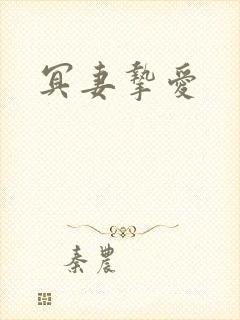 冥妻挚愛
秦農